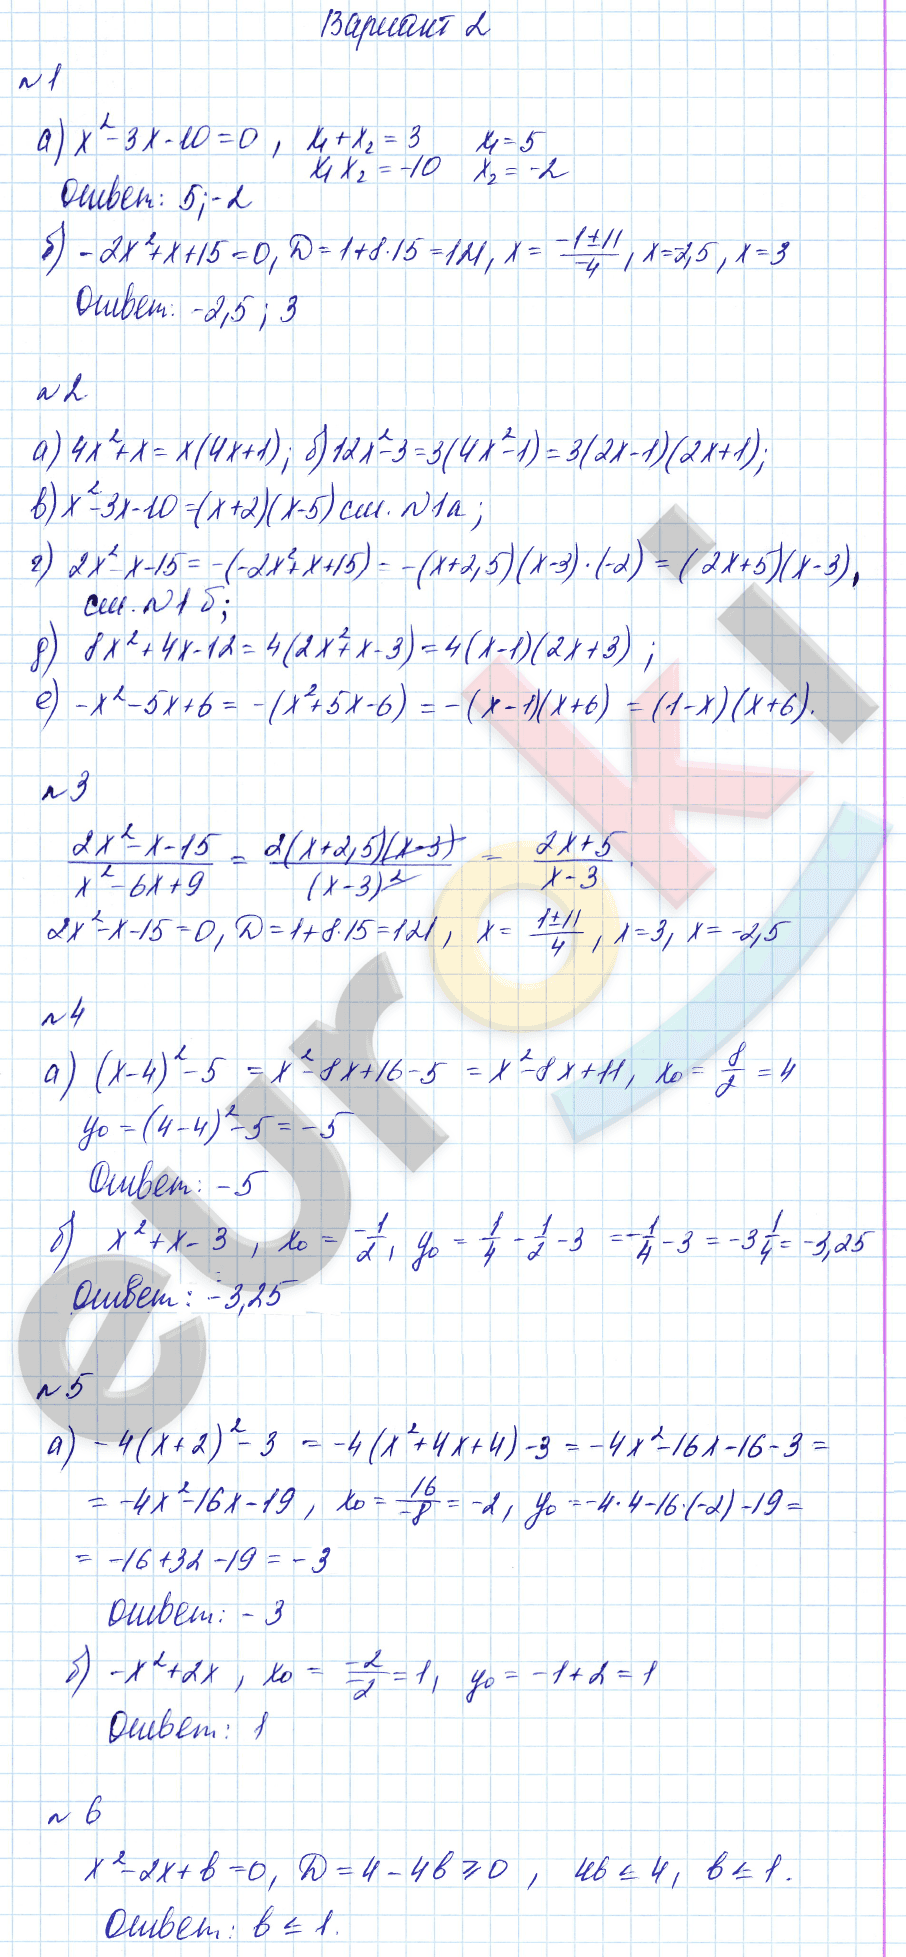 Вариант 2
№1
а) x² - 3x - 10 = 0, x₁ + x₂ = 3 x₁ = 5
x₁ x₂ = -10 x₂ = -2
Ответ: 5; -2
б) -2x² + x + 15 = 0, D = 1 + 8·15 = 121, x = (-1 ± 11)/(-4), x = -2,5, x = 3
Ответ: -2,5; 3
№2
а) 4x² + x = x(4x + 1); б) 12x² - 3 = 3(4x² - 1) = 3(2x - 1)(2x + 1);
в) x² - 3x - 10 = (x + 2)(x - 5) см. №1а;
г) 2x² - x - 15 = -(-2x² + x + 15) = -(x + 2,5)(x - 3)·(-2) = (2x + 5)(x - 3),
см. №1 б;
д) 8x² + 4x - 12 = 4(2x² + x - 3) = 4(x - 1)(2x + 3);
е) -x² - 5x + 6 = -(x² + 5x - 6) = -(x - 1)(x + 6) = (1 - x)(x + 6).
№3
(2x² - x - 15)/(x² - 6x + 9) = 2(x + 2,5)(x - 3)/(x - 3)² = (2x + 5)/(x - 3).
2x² - x - 15 = 0, D = 1 + 8·15 = 121, x = (1 ± 11)/4, x = 3, x = -2,5
№4
а) (x - 4)² - 5 = x² - 8x + 16 - 5 = x² - 8x + 11, x₀ = 8/2 = 4
y₀ = (4 - 4)² - 5 = -5
Ответ: -5
б) x² + x - 3, x₀ = -1/2, y₀ = 1/4 - 1/2 - 3 = -1/4 - 3 = -3 1/4 = -3,25
Ответ: -3,25
№5
а) -4(x + 2)² - 3 = -4(x² + 4x + 4) - 3 = -4x² - 16x - 16 - 3 =
= -4x² - 16x - 19, x₀ = 16/(-8) = -2, y₀ = -4·4 - 16·(-2) - 19 =
= -16 + 32 - 19 = -3
Ответ: -3
б) -x² + 2x, x₀ = -2/-2 = 1, y₀ = -1 + 2 = 1
Ответ: 1
№6
x² - 2x + b = 0, D = 4 - 4b ≥ 0, 4b ≤ 4, b ≤ 1.
Ответ: b ≤ 1.
euroki